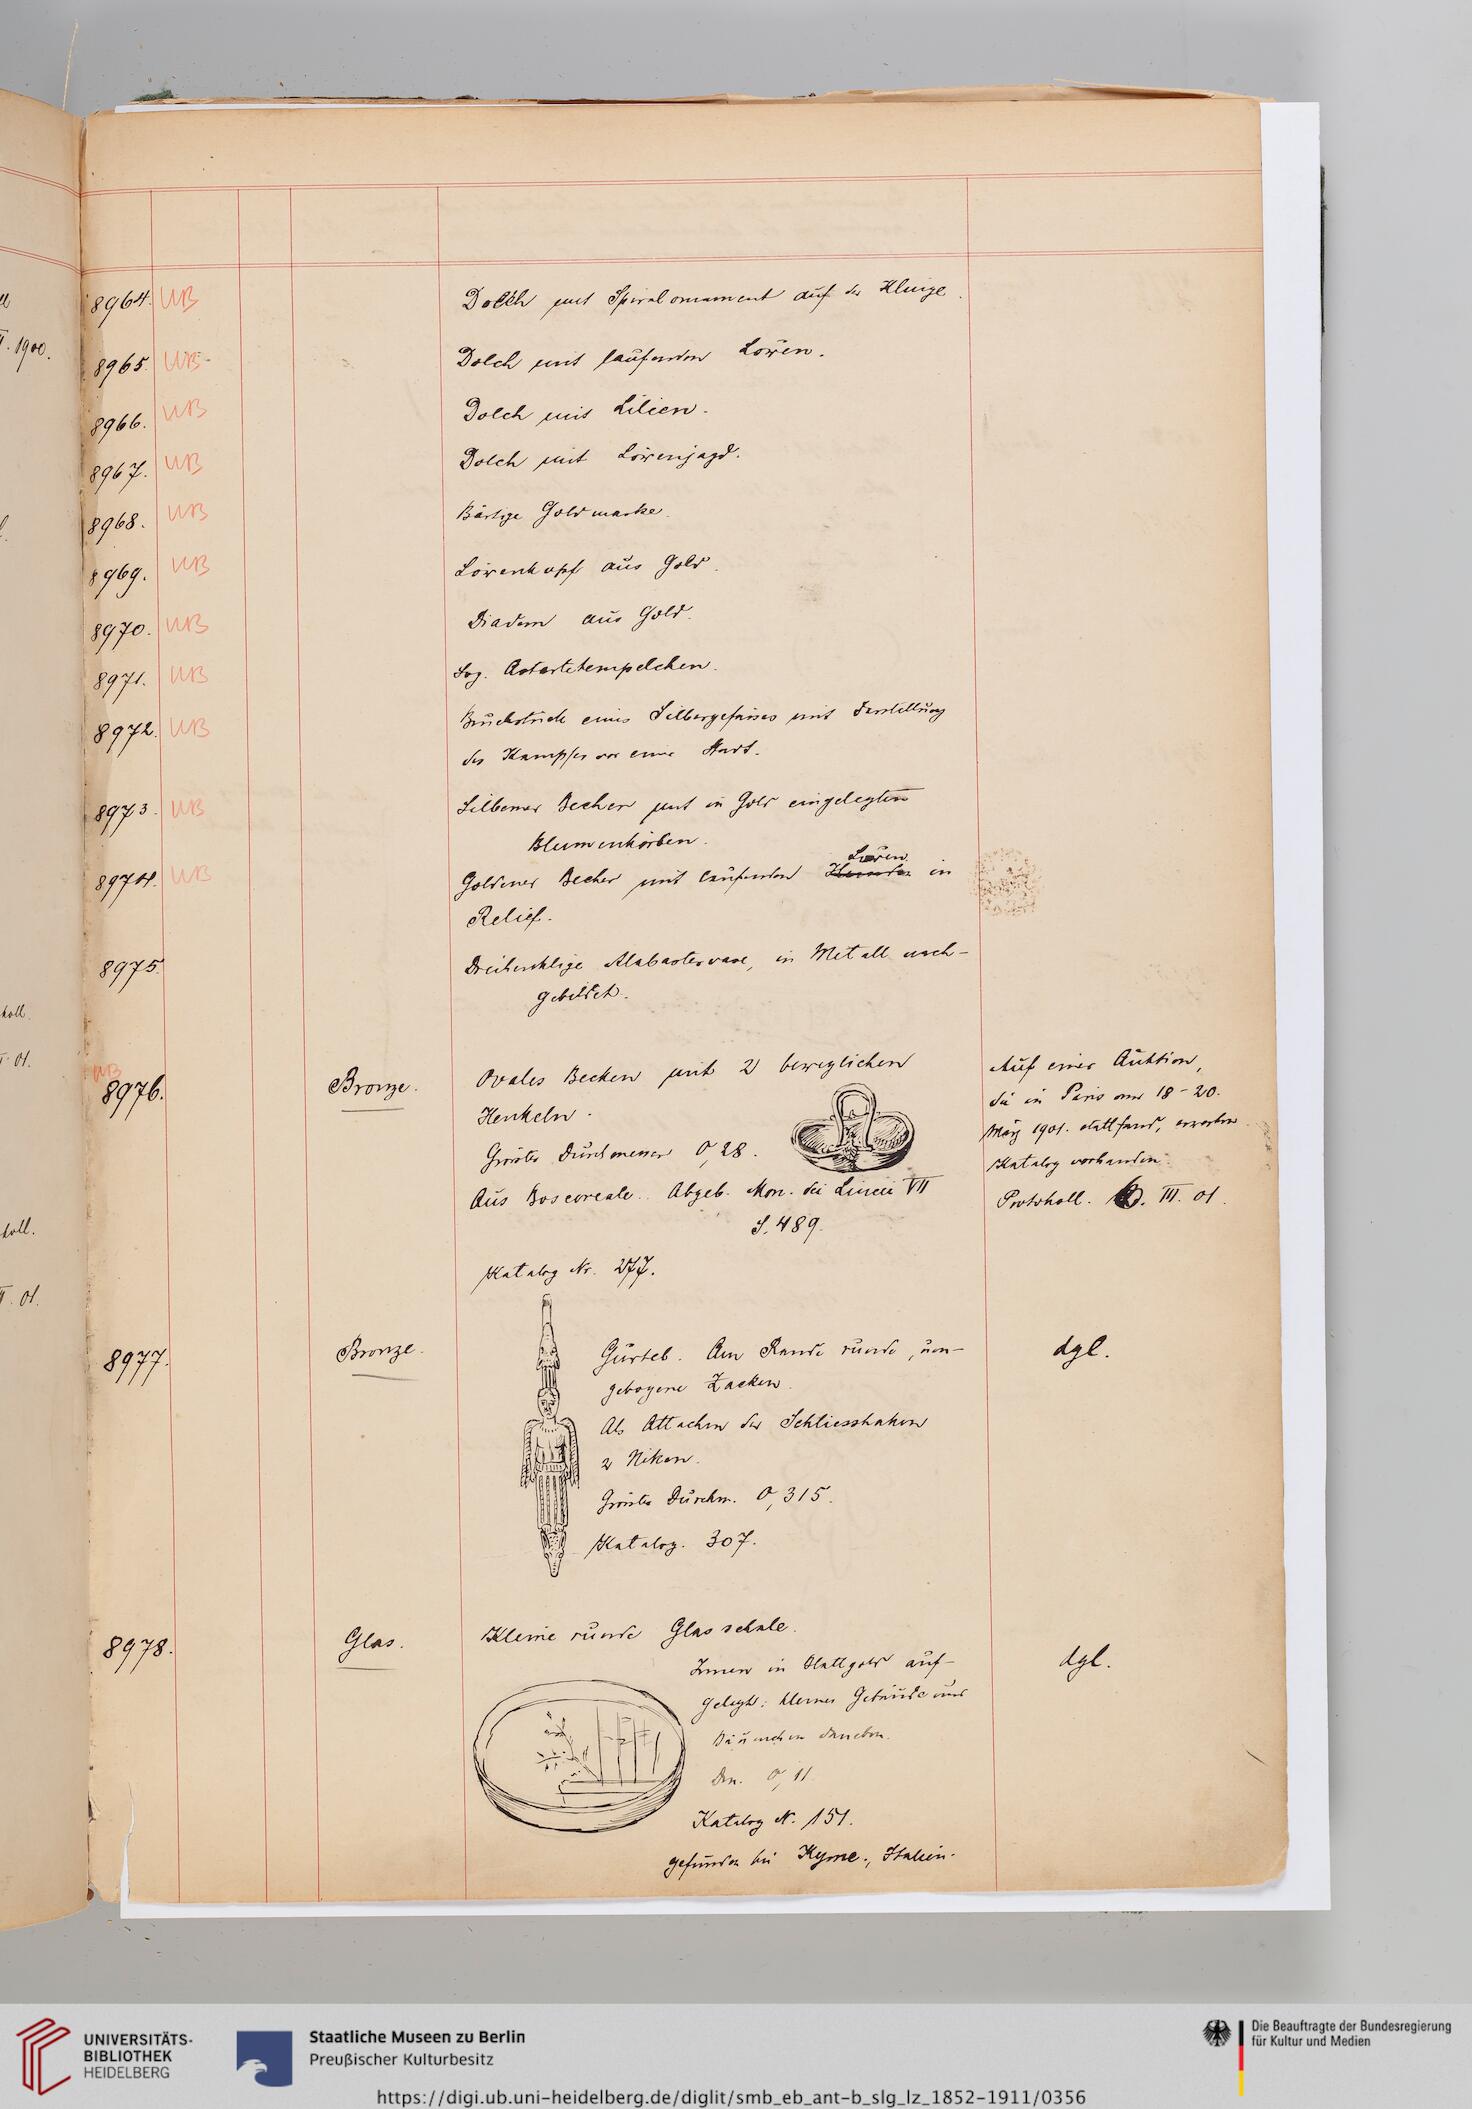 8964. UB Dolch mit Spiralornament auf der Klinge.
8965. UB Dolch mit laufenden Löwen.
8966. UB Dolch mit Lilien.
8967. UB Dolch mit Löwenjagd.
8968. UB Bärtige Goldmaske.
8969. UB Löwenkopf aus Gold.
8970. UB Diadem aus Gold.
8971. UB Sog. Astartetempelchen.
8972. UB Bruchstück eines Silbergefässes mit Darstellung
des Kampfes vor einer Stadt.
8973. UB Silberner Becher mit in Gold eingelegten
Blumenkörben.
8974. UB Goldener Becher mit laufenden Hunden Löwen in
Relief.
8975. Dreihenklige Alabastervase, in Metall nach-
gebildet.
UB
8976. Bronze. Ovales Becken mit 2 beweglichen
Henkeln.
Grösster Durchmesser 0,28.
Aus Boscoreale. Abgeb. Mon. dei Lincei VII
S. 489.
Katalog Nr. 277.
Auf einer Auktion,
die in Paris am 18-20.
März 1901. stattfand, erworben.
Katalog vorhanden.
Protokoll. III. 01.
8977. Bronze. Gürtel. Am Rande runde, um-
gebogene Zacken.
Als Attachen der Schliesshaken
2 Niken.
Grösster Durchm. 0,315.
Katalog. 307.
dgl.
8978. Glas. Kleine runde Glasschale.
Innen in Blattgold auf-
gelegt: kleines Gebäude und
Bäumchen daneben.
Dm. 0,11.
Katalog N. 151.
gefunden bei Kyme., Italien.
dgl.
1900.
koll.
01.
koll.
01.
UNIVERSITÄTS-
BIBLIOTHEK
HEIDELBERG
Staatliche Museen zu Berlin
Preußischer Kulturbesitz
Die Beauftragte der Bundesregierung
für Kultur und Medien
https://digi.ub.uni-heidelberg.de/diglit/smb_eb_ant-b_slg_lz_1852-1911/0356